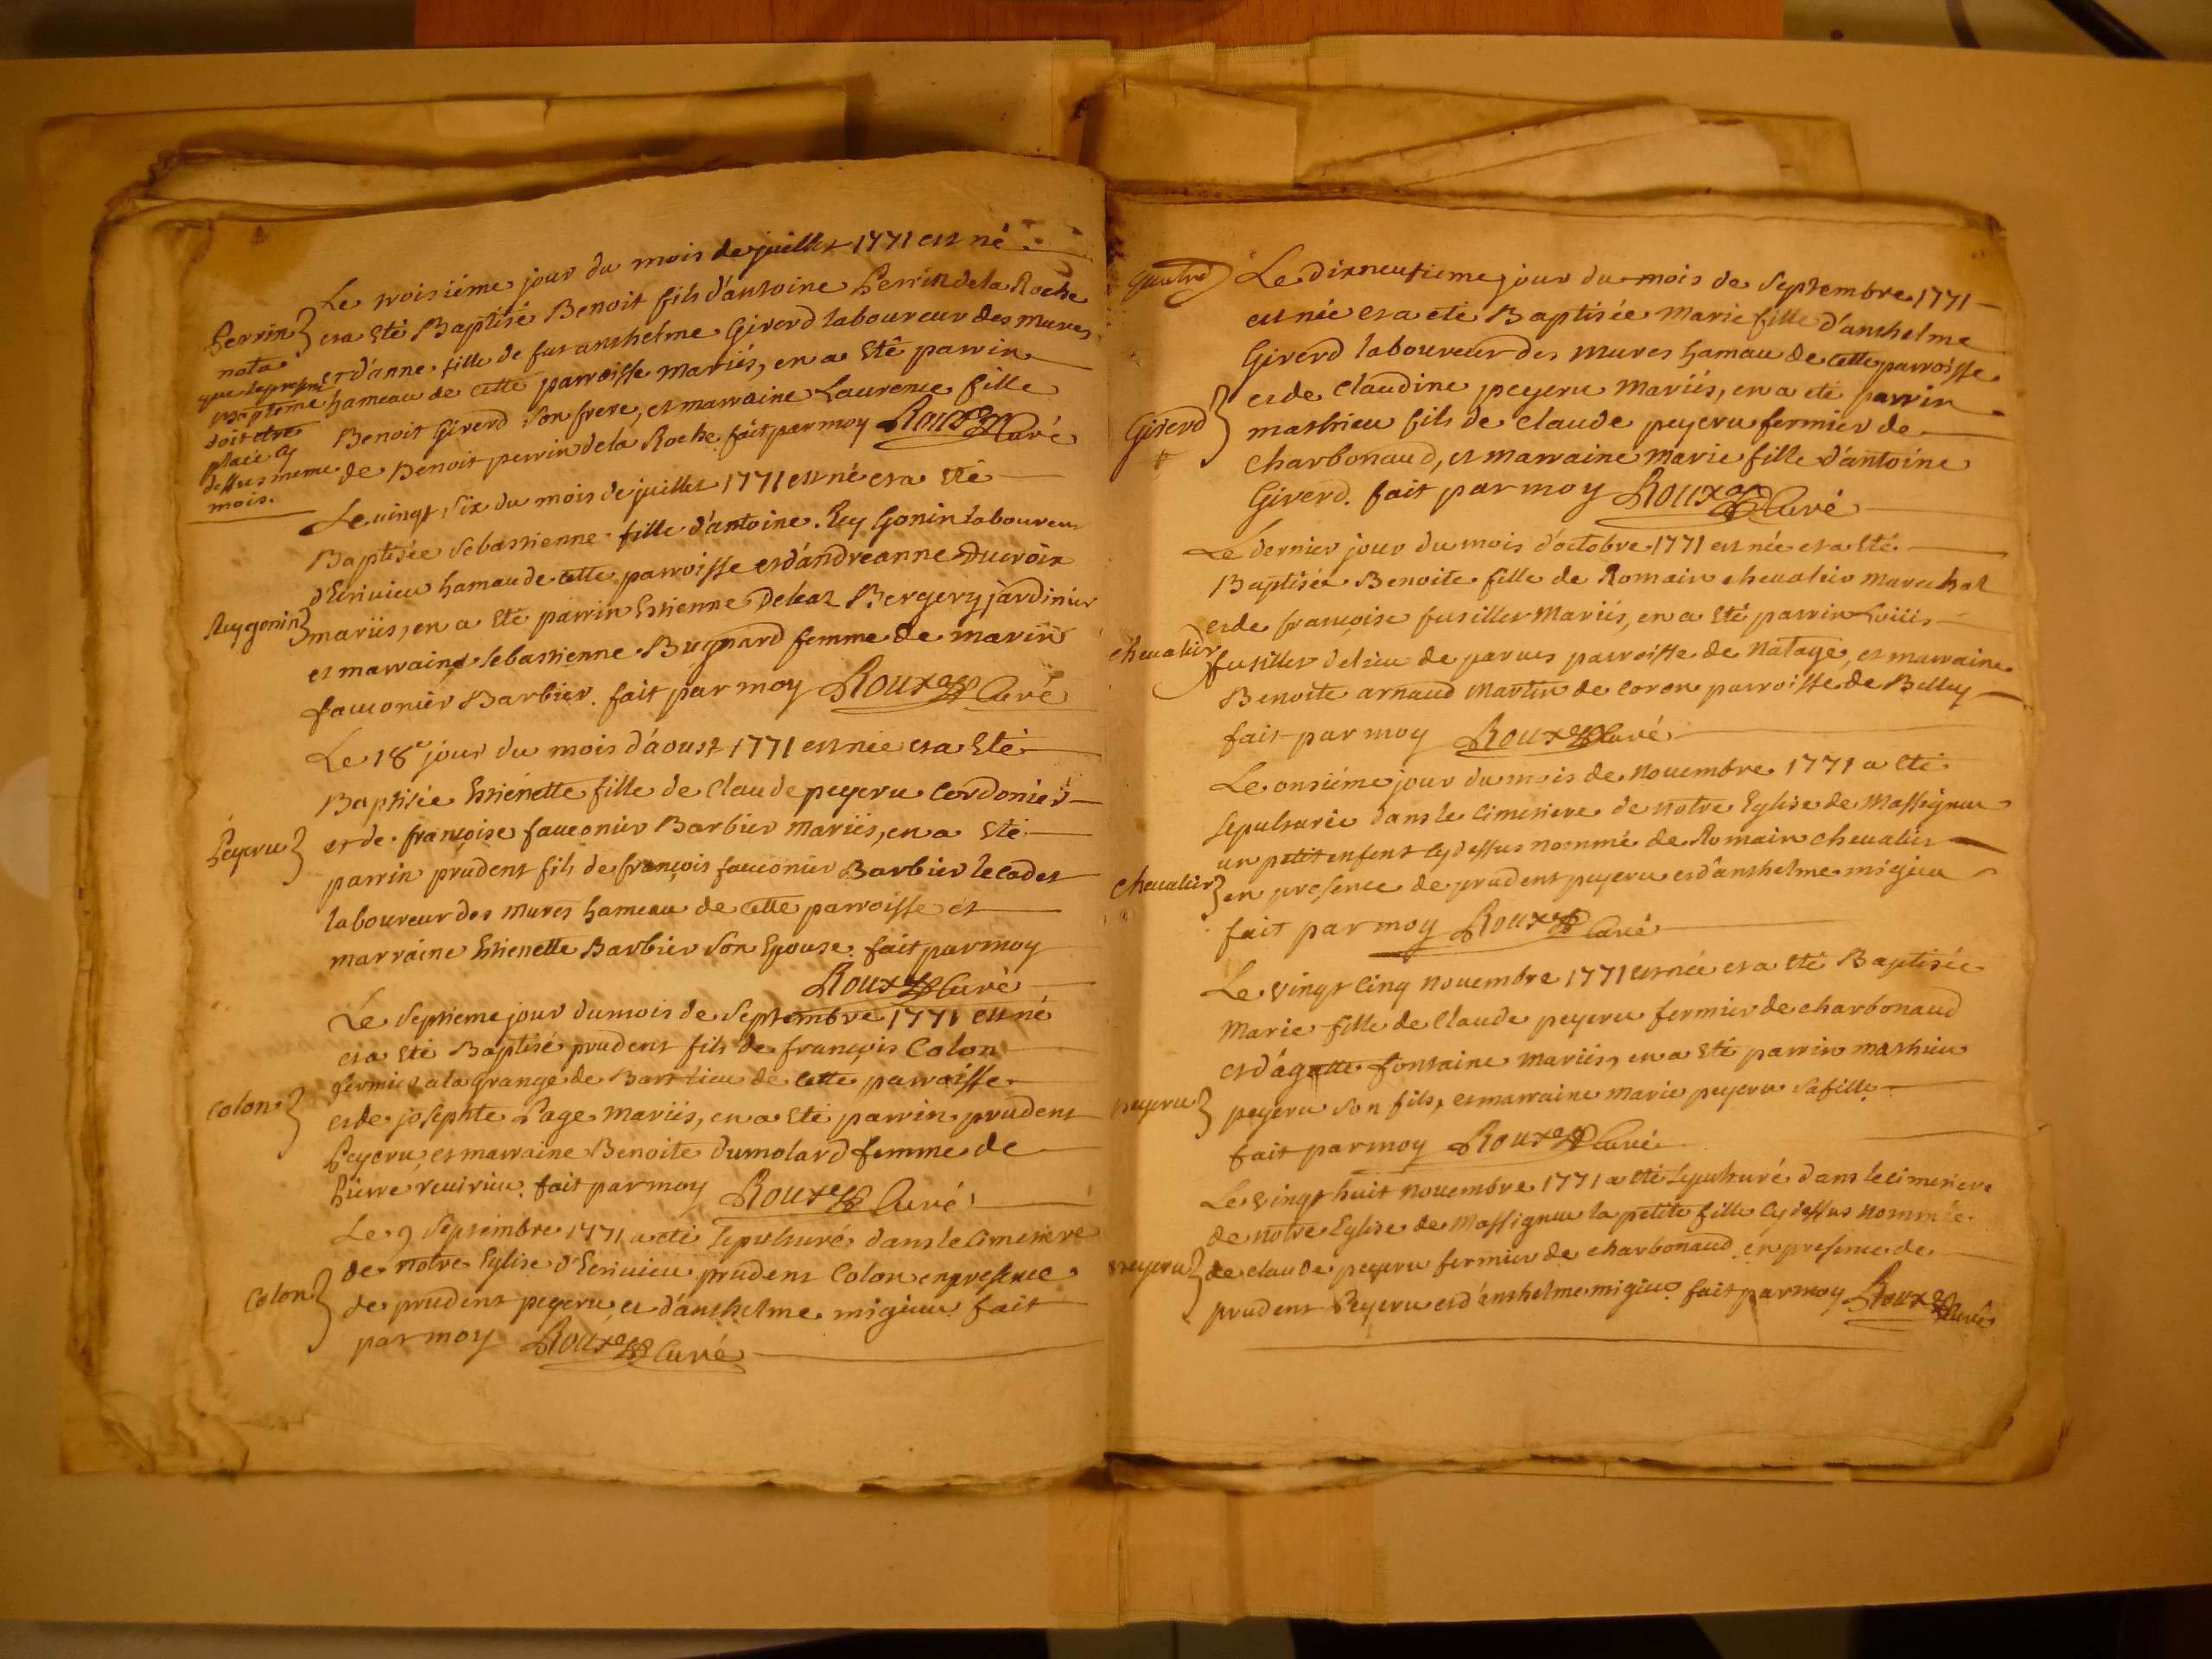 Le troisiéme jour du mois de juillet 1771 est né
Perrin} et a eté Baptisé Benoit fils d'antoine Perrin de la Roche
nota et d'anne fille de fut anthelme Girerd laboureur des mures
que le present Baptême hameau de cette parroisse mariés, en a eté parrin
doit etre Benoit Girerd son frere, et marraine Laurence fille
placé cy de Benoit perrin de la Roche fait par moy Roux Curé
dessus meme
mois.
Le vingt six du mois de juillet 1771 est né et a eté
Baptisée sebastienne fille d'antoine Rey Gonin laboureur
d'Ecrivieu hamau de cette parroisse et d'andreanne Ducroix
Reygonin} mariés, en a eté parrin Estienne Bergery jardinier
et marraine sebastienne Bugnard femme de marin
fauconier Barbier. fait par moy Roux Curé
Le 18e jour du mois d'áoust 1771 est née et a eté
Baptisée Estienette fille de Claude peyeru Cordonier
Peyeru} et de françoise fauconier Barbier mariés, en a eté
parrin prudent fils de françois fauconier Barbier le cadet
laboureur des mures hameau de cette parroisse et
marraine Estienette Barbier son Epouse. fait par moy
Roux Curé
Le septieme jour du mois de septembre 1771 est né
et a eté Baptisé prudent fils de françois Colon
fermier a la grange de Bartlieu de cette parroisse
Colon} et de josephte Page mariés, en a eté parrin prudent
Peyeru, et marraine Benoite Dumolard femme de
Pierre revirieu. fait par moy Roux Curé
Le 9 septembre 1771 a eté sepulturé dans le cimetiere
de notre Eglise d'Ecrivieu prudent Colon en presence
Colon} de prudent peyeru, et d'anthelme migieu fait
par moy Roux Curé
Le dixneufieme jour du mois de septembre 1771
est née et a eté Baptisée marie fille d'anthelme
Girerd laboureur des mures hamau de cette parroisse
et de Claudine peyeru mariés, en a eté parrin
Girerd} mathieu fils de Claude peyeru fermier de
charbonaud, et marraine marie fille d'antoine
Girerd. fait par moy Roux Curé
Le dernier jour du mois d'octobre 1771 est née et a eté
Baptisée Benoite fille de Romain chevalier marechal
et de françoise fusiller mariés, en a eté parrin
chevalier} fusiller du lieu de parves parroisse de Natage, et marraine
Benoite arnaud martin de Coron parroisse de Belley
fait par moy Roux Curé
Le onsiéme jour du mois de novembre 1771 a eté
sepulturée dans le cimetiere de notre Eglise de Massignieu
un petit enfent cy dessus nommé de Romain chevalier
chevalier} en presence de prudent peyeru et d'anthelme migieu
fait par moy Roux Curé
Le vingt cinq novembre 1771 est née et a eté Baptisée
Marie fille de Claude peyeru fermier de charbonaud
et d'ágatte fontaine mariés, en a eté parrin mathieu
peyeru} peyeru son fils, et marraine marie peyeru sa fille
fait par moy Roux Curé
Le vingt huit novembre 1771 a eté sepulturé dans le cimetiere
de notre Eglise de Massignieu la petite fille cy dessus nommée
peyeru} de claude peyeru fermier de charbonaud en presence de
prudent Peyeru et d'anthelme migieu fait par moy Roux Curé